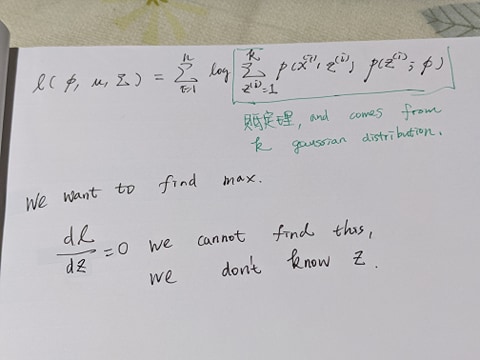 ℓ(φ, u, Σ) = Σ_{i=1}^{n} log [ Σ_{z^{(i)}=1}^{k} p(x^{(i)}, z^{(i)}) p(z^{(i)}; φ) ]
定理, and comes from
k gaussian distribution.
We want to find max.
dℓ/dz = 0 we cannot find this,
we don't know z.